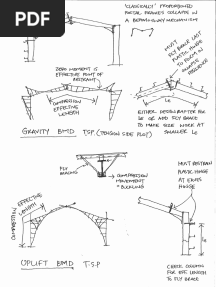 PDF
'CLASSICALLY' PROPORTIONED
PORTAL FRAMES COLLAPSE IN
A BEAM/SWAY MECHANISM
MUST
FLY BRACE LAST
PLASTIC HINGE
TO FORM IN
SEQUENCE
ZERO MOMENT IS
EFFECTIVE POINT OF
RESTRAINT
COMPRESSION
EFFECTIVE
LENGTH
EITHER
FOR
OR ADD FLY BRACE
TO MAKE SURE WORK AT
SMALLER
GRAVITY BMD T.S.P (TENSION SIDE PLOT)
FLY
BRACING
COMPRESSION
MOVEMENT
= BUCKLING
MUST RESTRAIN
PLASTIC HINGE
AT EAVES
HINGE
COMPRESSION
EFFECTIVE
LENGTH
CHECK COLUMN
FOR EFF. LENGTH
TO FLY BRACE
UPLIFT BMD T.S.P